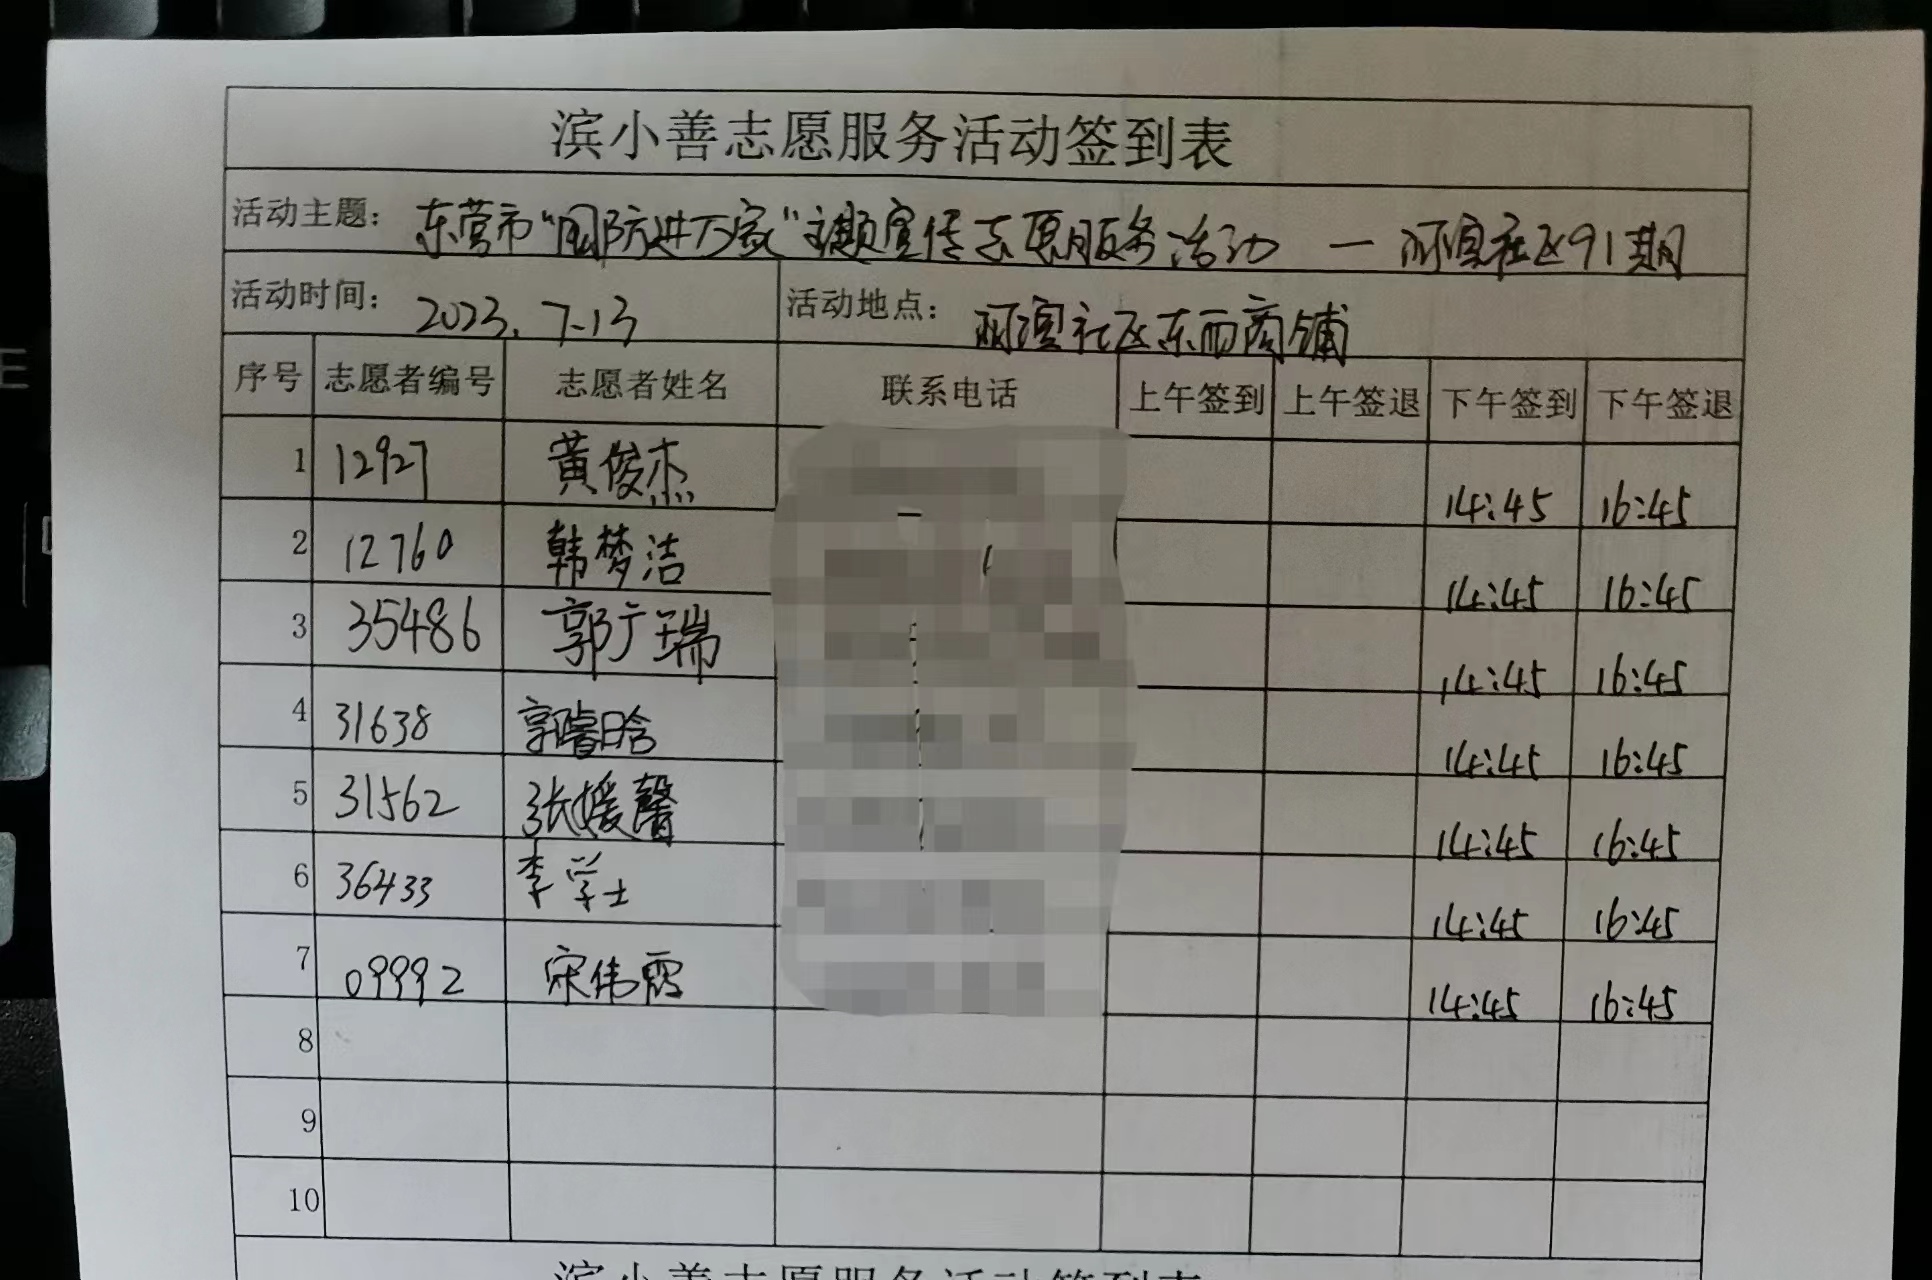 滨小善志愿服务活动签到表
活动主题： 东营市“国防进万家”主题宣传志愿服务活动 — 丽澳社区91期
活动时间： 2023.7.13 活动地点： 丽澳社区东西商铺
序号 志愿者编号 志愿者姓名 联系电话 上午签到 上午签退 下午签到 下午签退
1 12927 黄俊杰 14:45 16:45
2 12760 韩梦洁 14:45 16:45
3 35486 郭广瑞 14:45 16:45
4 31638 郭睿晗 14:45 16:45
5 31562 张媛馨 14:45 16:45
6 36433 李学士 14:45 16:45
7 09992 宋伟霞 14:45 16:45
8
9
10
滨小善志愿服务活动签到表